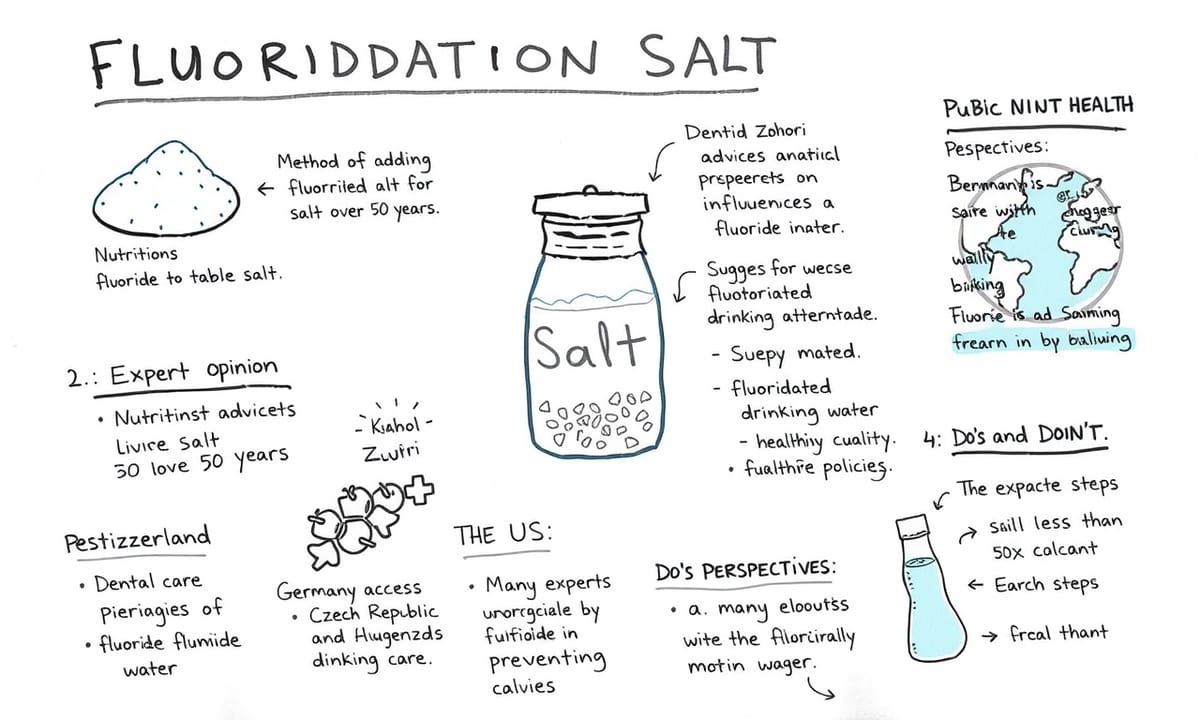 FLUORIDDATION SALT
Method of adding
fluorriled alt for
salt over 50 years.
Nutritions
fluoride to table salt.
Dentid Zohori
advices anatiɩcl
prspeerets on
influuenıces a
fluoride inater.
Sugges for wecse
fluotoriated
drinking atterntade.
- Suepy mated.
- fluoridated
drinking water
- healthiıy cuality.
• fualthire policies.
Salt
PuBic NINT HEALTH
Pespectives:
saire with
wally
Fluorie is ad Saiming
frearn in by baliwing
2.: Expert opinion
• Nutritinst advicets
Livire salt
30 love 50 years
- Kiahol -
Zwfri
Pestizzerland
• Dental care
Pieriagies of
• fluoride flumide
water
Germany access
• Czech Republic
and Hlugenzds
dinking care.
THE US:
• Many experts
unorgciale by
fulfioide in
preventing
calvies
Do's PERSPECTIVES:
• a. many elooutss
wite the filorcirally
motin wager.
4: Do's and DOIN'T.
The expacte steps
saill less than
50x calcant
Earch steps
frcal thant